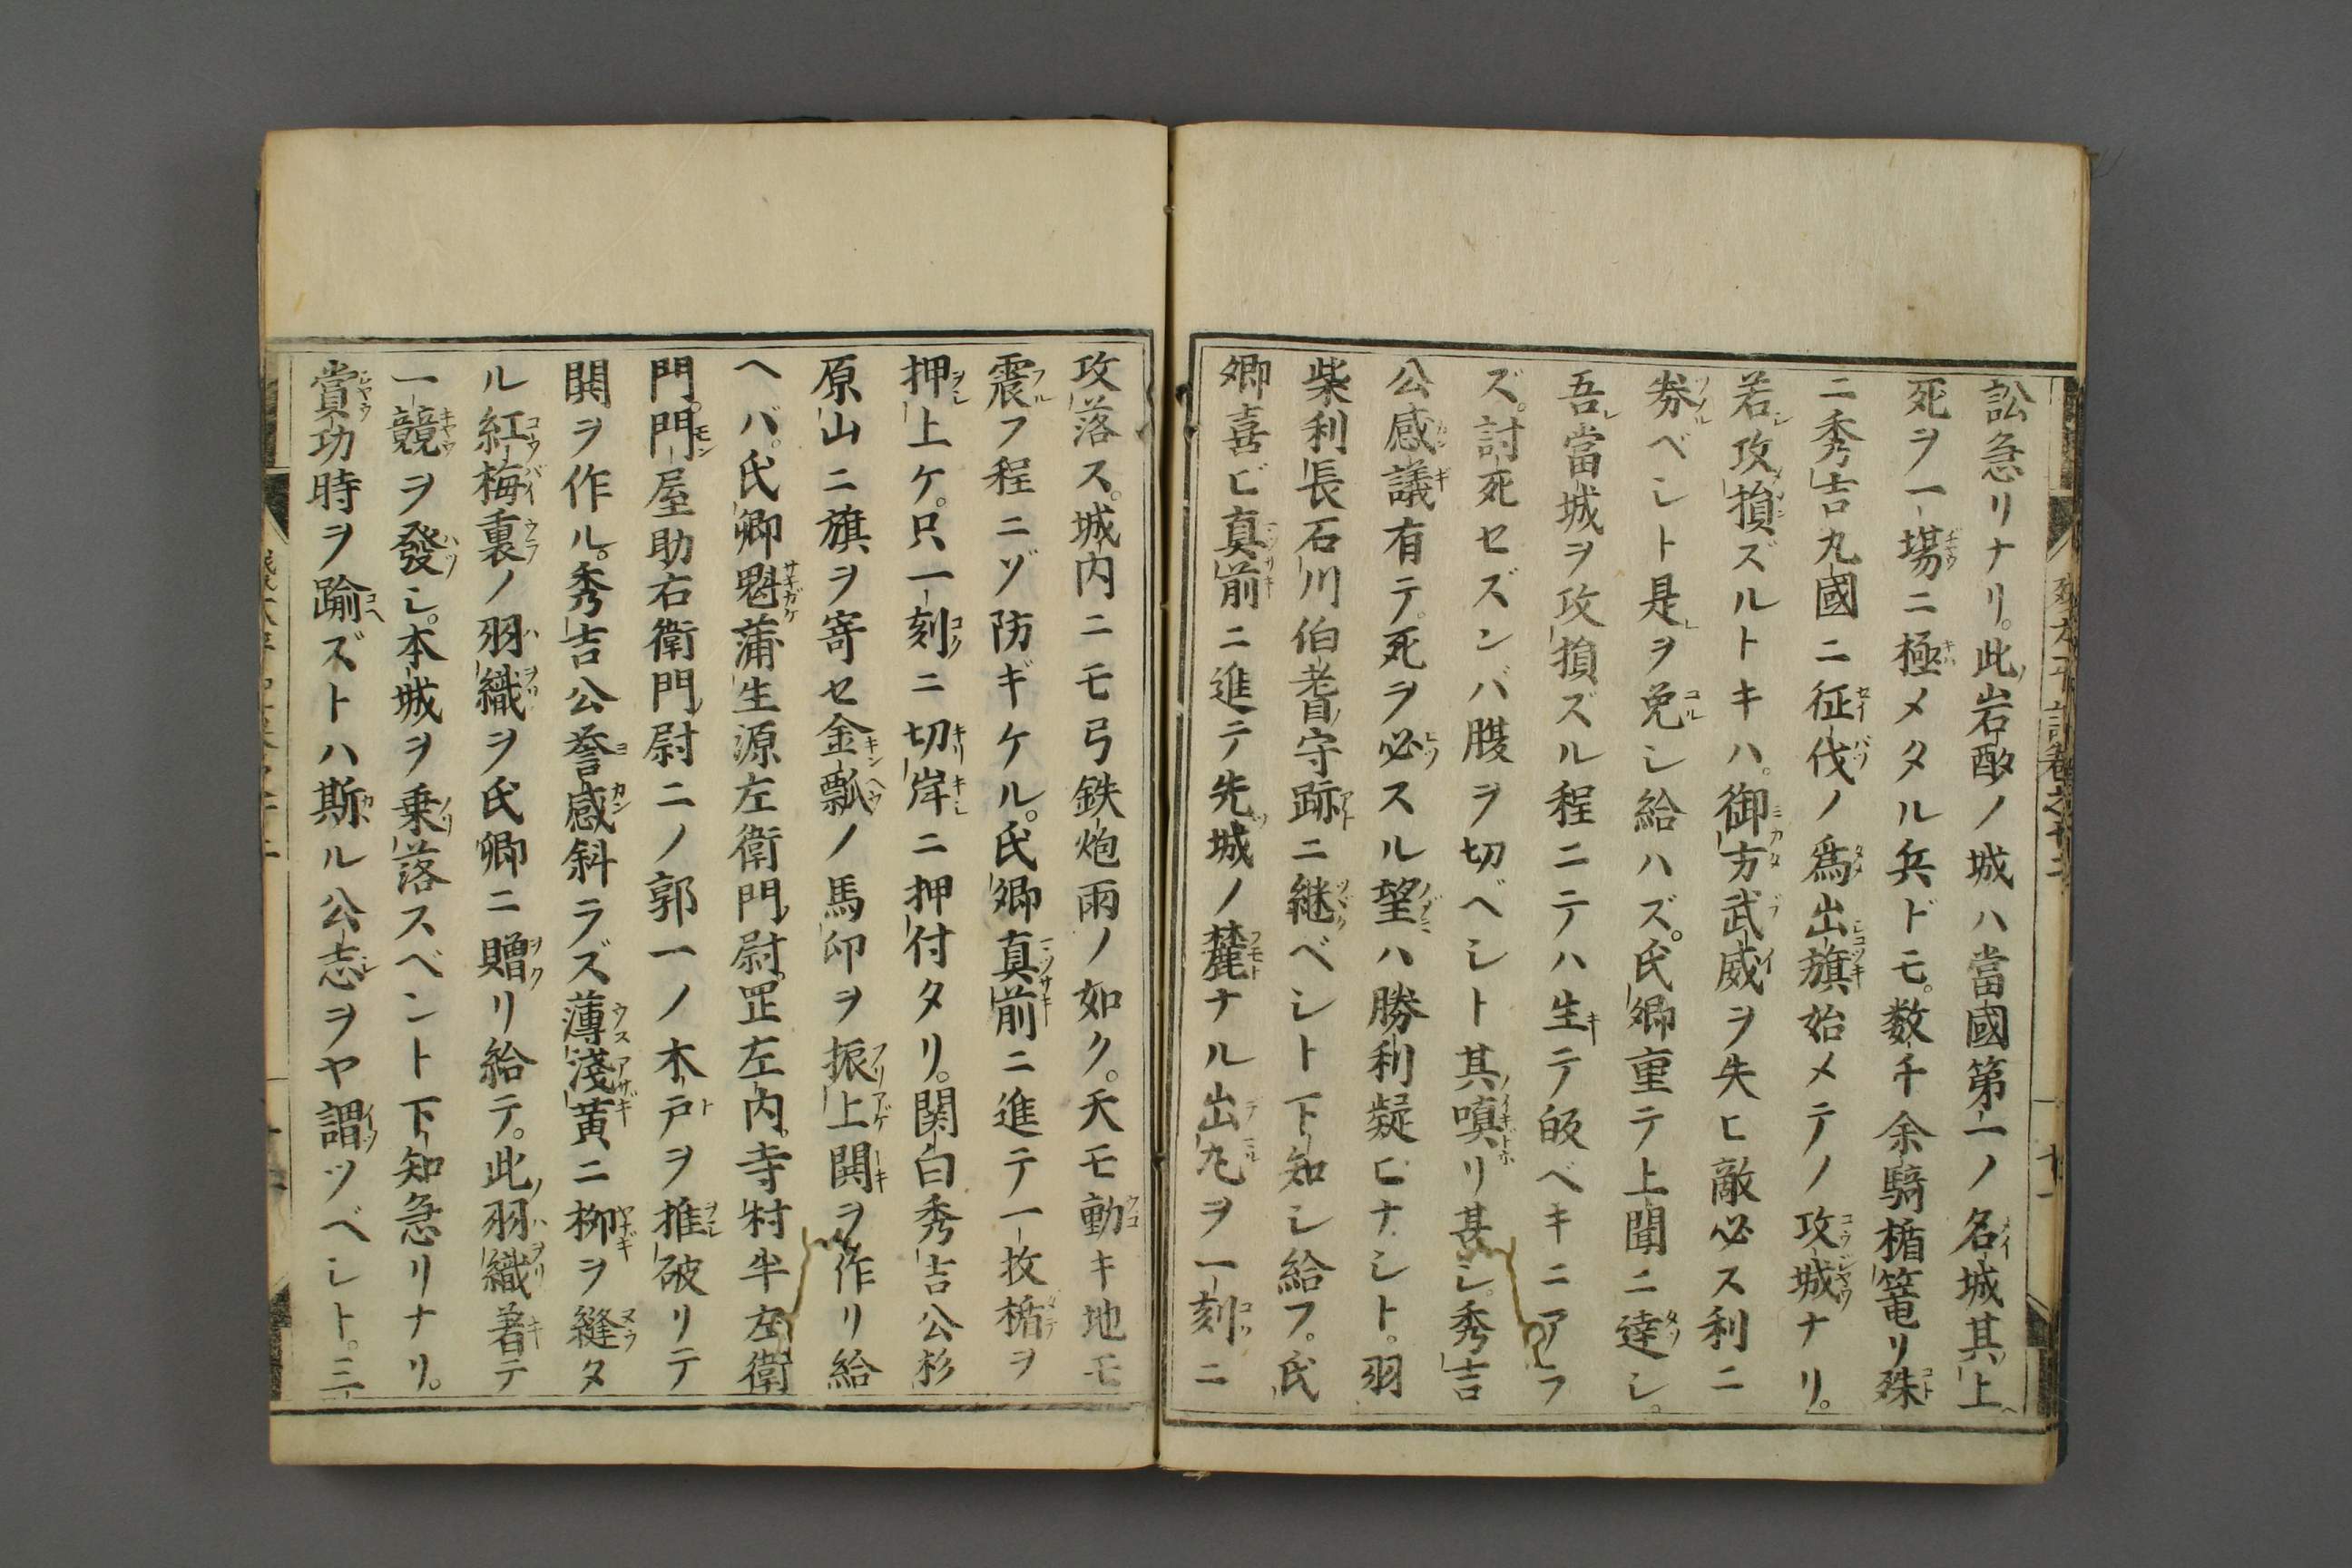 訟急リナリ。此岩酌ノ城ハ當國第一ノ名城其上
死ヲ一塲ニ極メタル兵ドモ。数千余騎楯篭リ殊
ニ秀吉九國ニ征伐ノ爲出旗始メテノ攻城ナリ。
若攻損ズルトキハ。御方武威ヲ失ヒ敵必ス利ニ
募ベシト是ヲ免シ給ハズ。氏卿重テ上聞ニ達シ。
吾當城ヲ攻損ズル程ニテハ生テ皈ベキニアラ
ズ。討死セズンバ腹ヲ切ベシト其嗔リ甚シ。秀吉
公感議有テ。死ヲ必スル望ハ勝利疑ヒナシト。羽
柴利長石川伯耆守跡ニ継ベシト下知シ給フ。氏
卿喜ビ真前ニ進テ先城ノ麓ナル出丸ヲ一刻ニ
攻落ス。城内ニモ弓鉄炮雨ノ如ク。天モ動キ地モ
震フ程ニゾ防ギケル。氏卿真前ニ進テ一枚楯ヲ
押上ケ。只一刻ニ切岸ニ押付タリ。関白秀吉公杉
原山ニ旗ヲ寄セ金瓢ノ馬印ヲ振上閧ヲ作リ給
ヘバ。氏卿魁蒲生源左衛門尉。罡左内。寺村半左衛
門。門屋助右衛門尉ニノ郭一ノ木戸ヲ推破リテ
閧ヲ作ル。秀吉公誉感斜ラズ薄淺黄ニ柳ヲ縫タ
ル紅梅裏ノ羽織ヲ氏卿ニ贈リ給テ。此羽織着テ
一競ヲ發シ。本城ヲ乗落スベント下知急リナリ。
賞功時ヲ踰ズトハ斯ル公志ヲヤ謂ツベシト。三